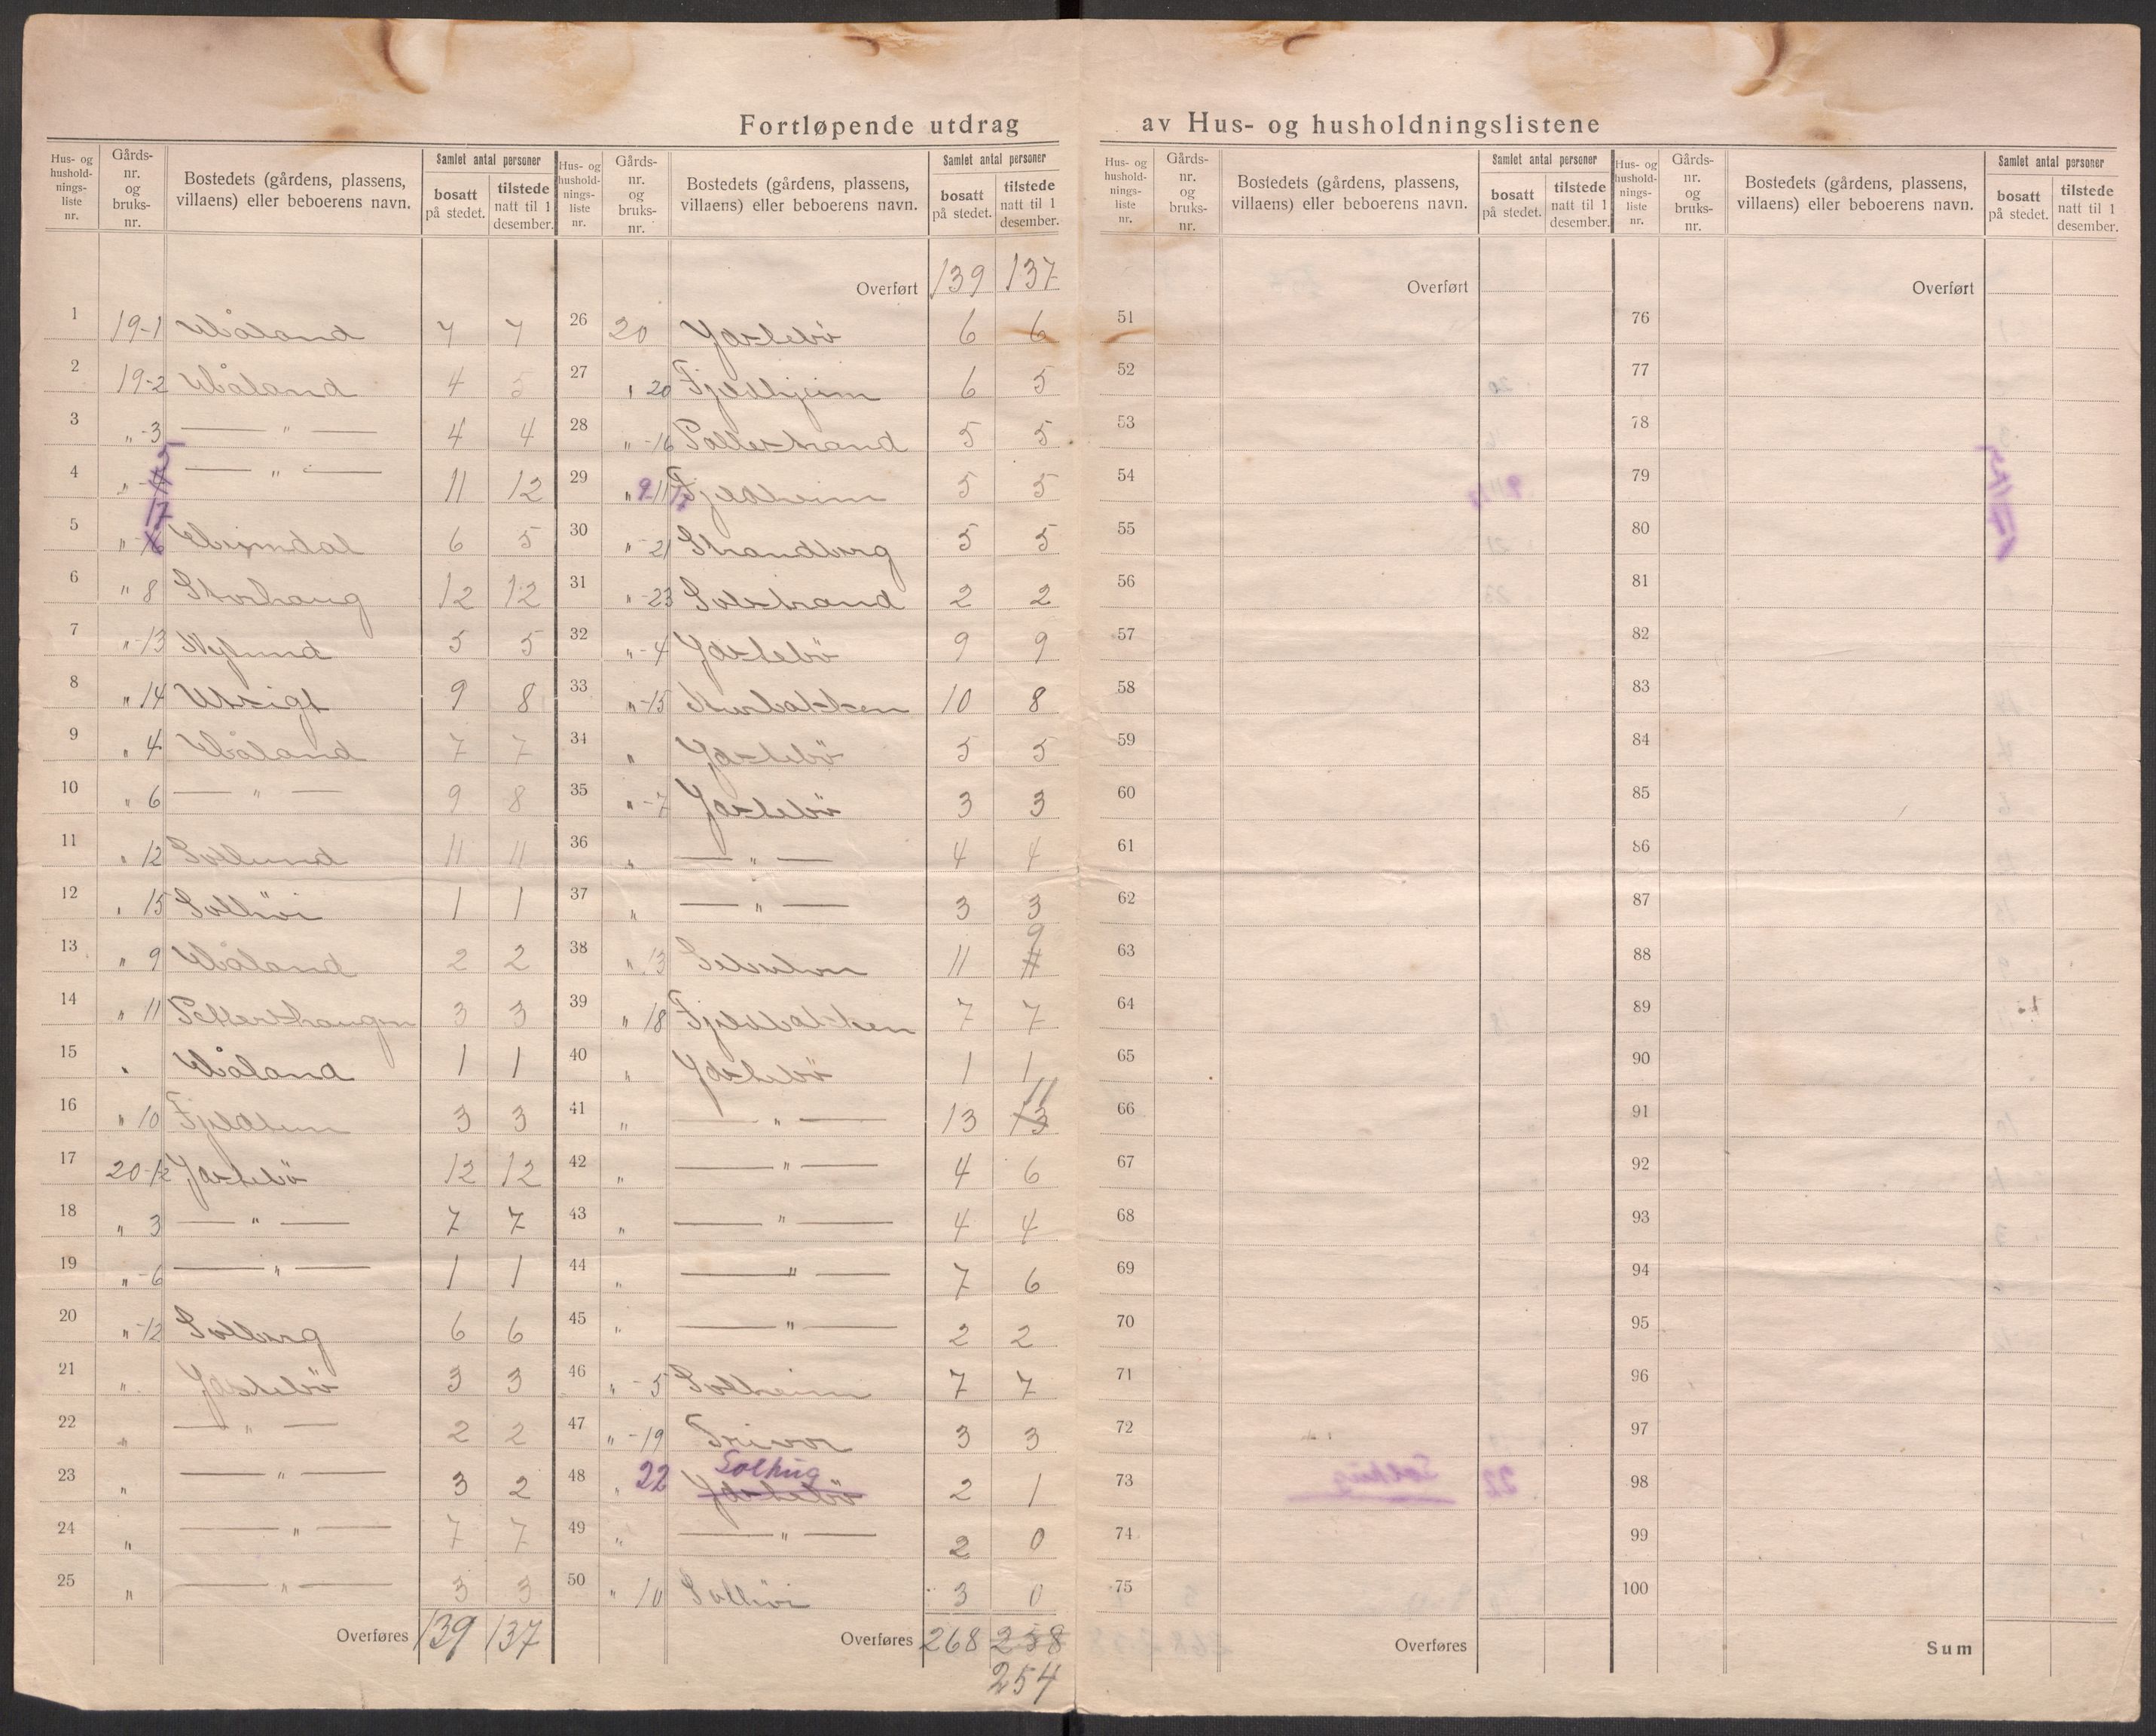 Fortløpende utdrag av Hus- og husholdningslistene
Hus- og hushold-nings-liste nr. Gårds-nr. og bruks-nr. Bostedets (gårdens, plassens, villaens) eller beboerens navn. Samlet antal personer bosatt på stedet. tilstede natt til 1 desember.
1 19-1 Våland 7 7
2 19-2 Våland 4 5
3 „-3 — „ — 4 4
4 „- 5 — „ — 11 12
5 „- 17 6 5
6 „ 8 Storhaug 12 12
7 „-13 Nylund 5 5
8 „ 14 Utsigt 9 8
9 „ 4 Våland 7 7
10 „ 6 — „ — 9 8
11 „ 12 Sollund 11 11
12 „ 15 Solhöi 1 1
13 „ 9 Våland 2 2
14 „ 11 Petterhaugen 3 3
15 „ Våland 1 1
16 „ 10 3 3
17 20-1/2 Jastebö 12 12
18 „ 3 — „ — 7 7
19 „-6 — „ — 1 1
20 „-12 Solberg 6 6
21 „ Jastebö 3 3
22 „ — „ — 2 2
23 „ — „ — 3 2
24 „ — „ — 7 7
25 „ — „ — 3 3
Overføres 139 137
Hus- og hushold-nings-liste nr. Gårds-nr. og bruks-nr. Bostedets (gårdens, plassens, villaens) eller beboerens navn. Samlet antal personer bosatt på stedet. tilstede natt til 1 desember.
Overført 139 137
26 20 Jastebö 6 6
27 „ 20 Fjeldhjeim 6 5
28 „-16 Pollestrand 5 5
29 „ 9-11 Fjeldheim 5 5
30 „-21 Strandberg 5 5
31 „-23 Solstrand 2 2
32 „-4 Jastebö 9 9
33 „-15 10 8
34 „ Jastebö 5 5
35 „-7 Jastebö 3 3
36 „ — „ — 4 4
37 „ — „ — 3 3
38 „ 13 11 9
39 „ 18 Fjeldbakken 7 7
40 „ Jastebö 1 1
41 „ — „ — 13 11
42 „ — „ — 4 6
43 „ — „ — 4 4
44 „ — „ — 7 6
45 „ — „ — 2 2
46 „-5 Solheim 7 7
47 „-19 3 3
48 „ 22 Jastebö 2 1
49 „ — „ — 2 0
50 „ 10 Solhöi 3 0
Overføres 268 258
254
Hus- og hushold-nings-liste nr. Gårds-nr. og bruks-nr. Bostedets (gårdens, plassens, villaens) eller beboerens navn. Samlet antal personer bosatt på stedet. tilstede natt til 1 desember.
Overført
51
52
53
54
55
56
57
58
59
60
61
62
63
64
65
66
67
68
69
70
71
72
73
74
75
Overføres
Hus- og hushold-nings-liste nr. Gårds-nr. og bruks-nr. Bostedets (gårdens, plassens, villaens) eller beboerens navn. Samlet antal personer bosatt på stedet. tilstede natt til 1 desember.
Overført
76
77
78
79
80
81
82
83
84
85
86
87
88
89
90
91
92
93
94
95
96
97
98
99
100
Sum